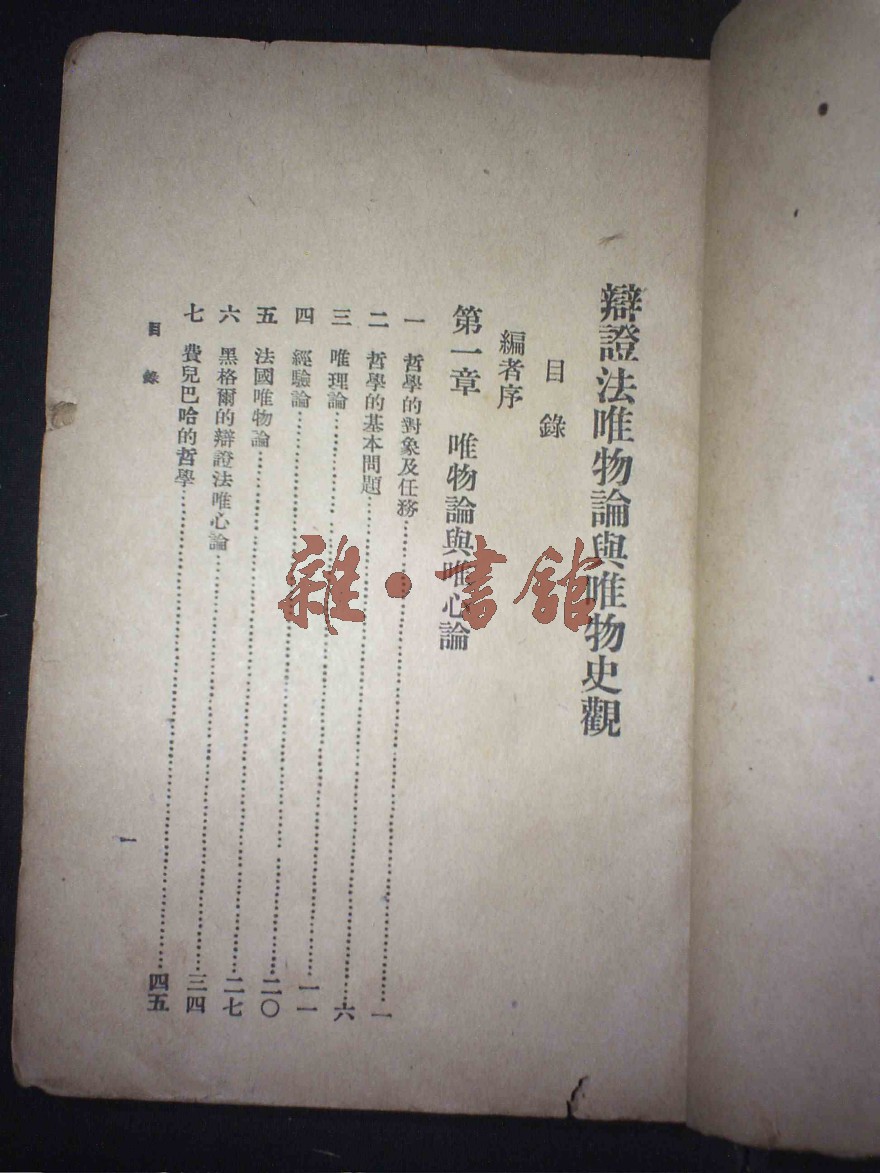 辯證法唯物論與唯物史觀
目錄
編者序
第一章 唯物論與唯心論
一 哲學的對象及任務……一
二 哲學的基本問題……六
三 唯理論……一一
四 經驗論……二〇
五 法國唯物論……二七
六 黑格爾的辯證法唯心論……三四
七 費兒巴哈的哲學……四五
目錄
一
雜·書館